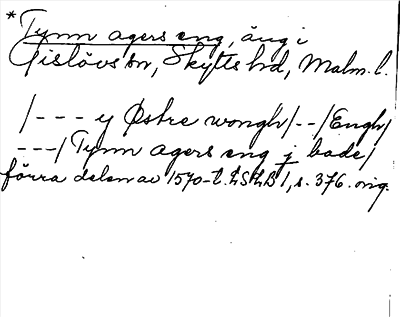 *Tynn agers eng, äng i
Gislövs sn, Skytts hd, Malm. l.
/--- y Østre wongh/--/Engh/
---/Tynn agers eng j bade/
förra delen av 1570-t. LSHB 1, s. 376. orig.